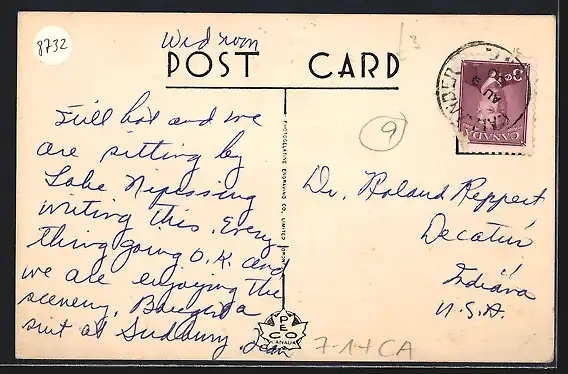 8732
Wed noon
POST CARD
3
9
Still hot and we
are sitting by
Lake Nipissing
writing this. Every
thing going O.K. and
we are enjoying the
scenery, Bought a
suit at Sudbury.
PHOTOGELATINE ENGRAVING CO. LIMITED
Dr. Roland Reppert
Decatur
Indiana
U.S.A.
CANADA
AU
PECO
CANADA
7-14 CA